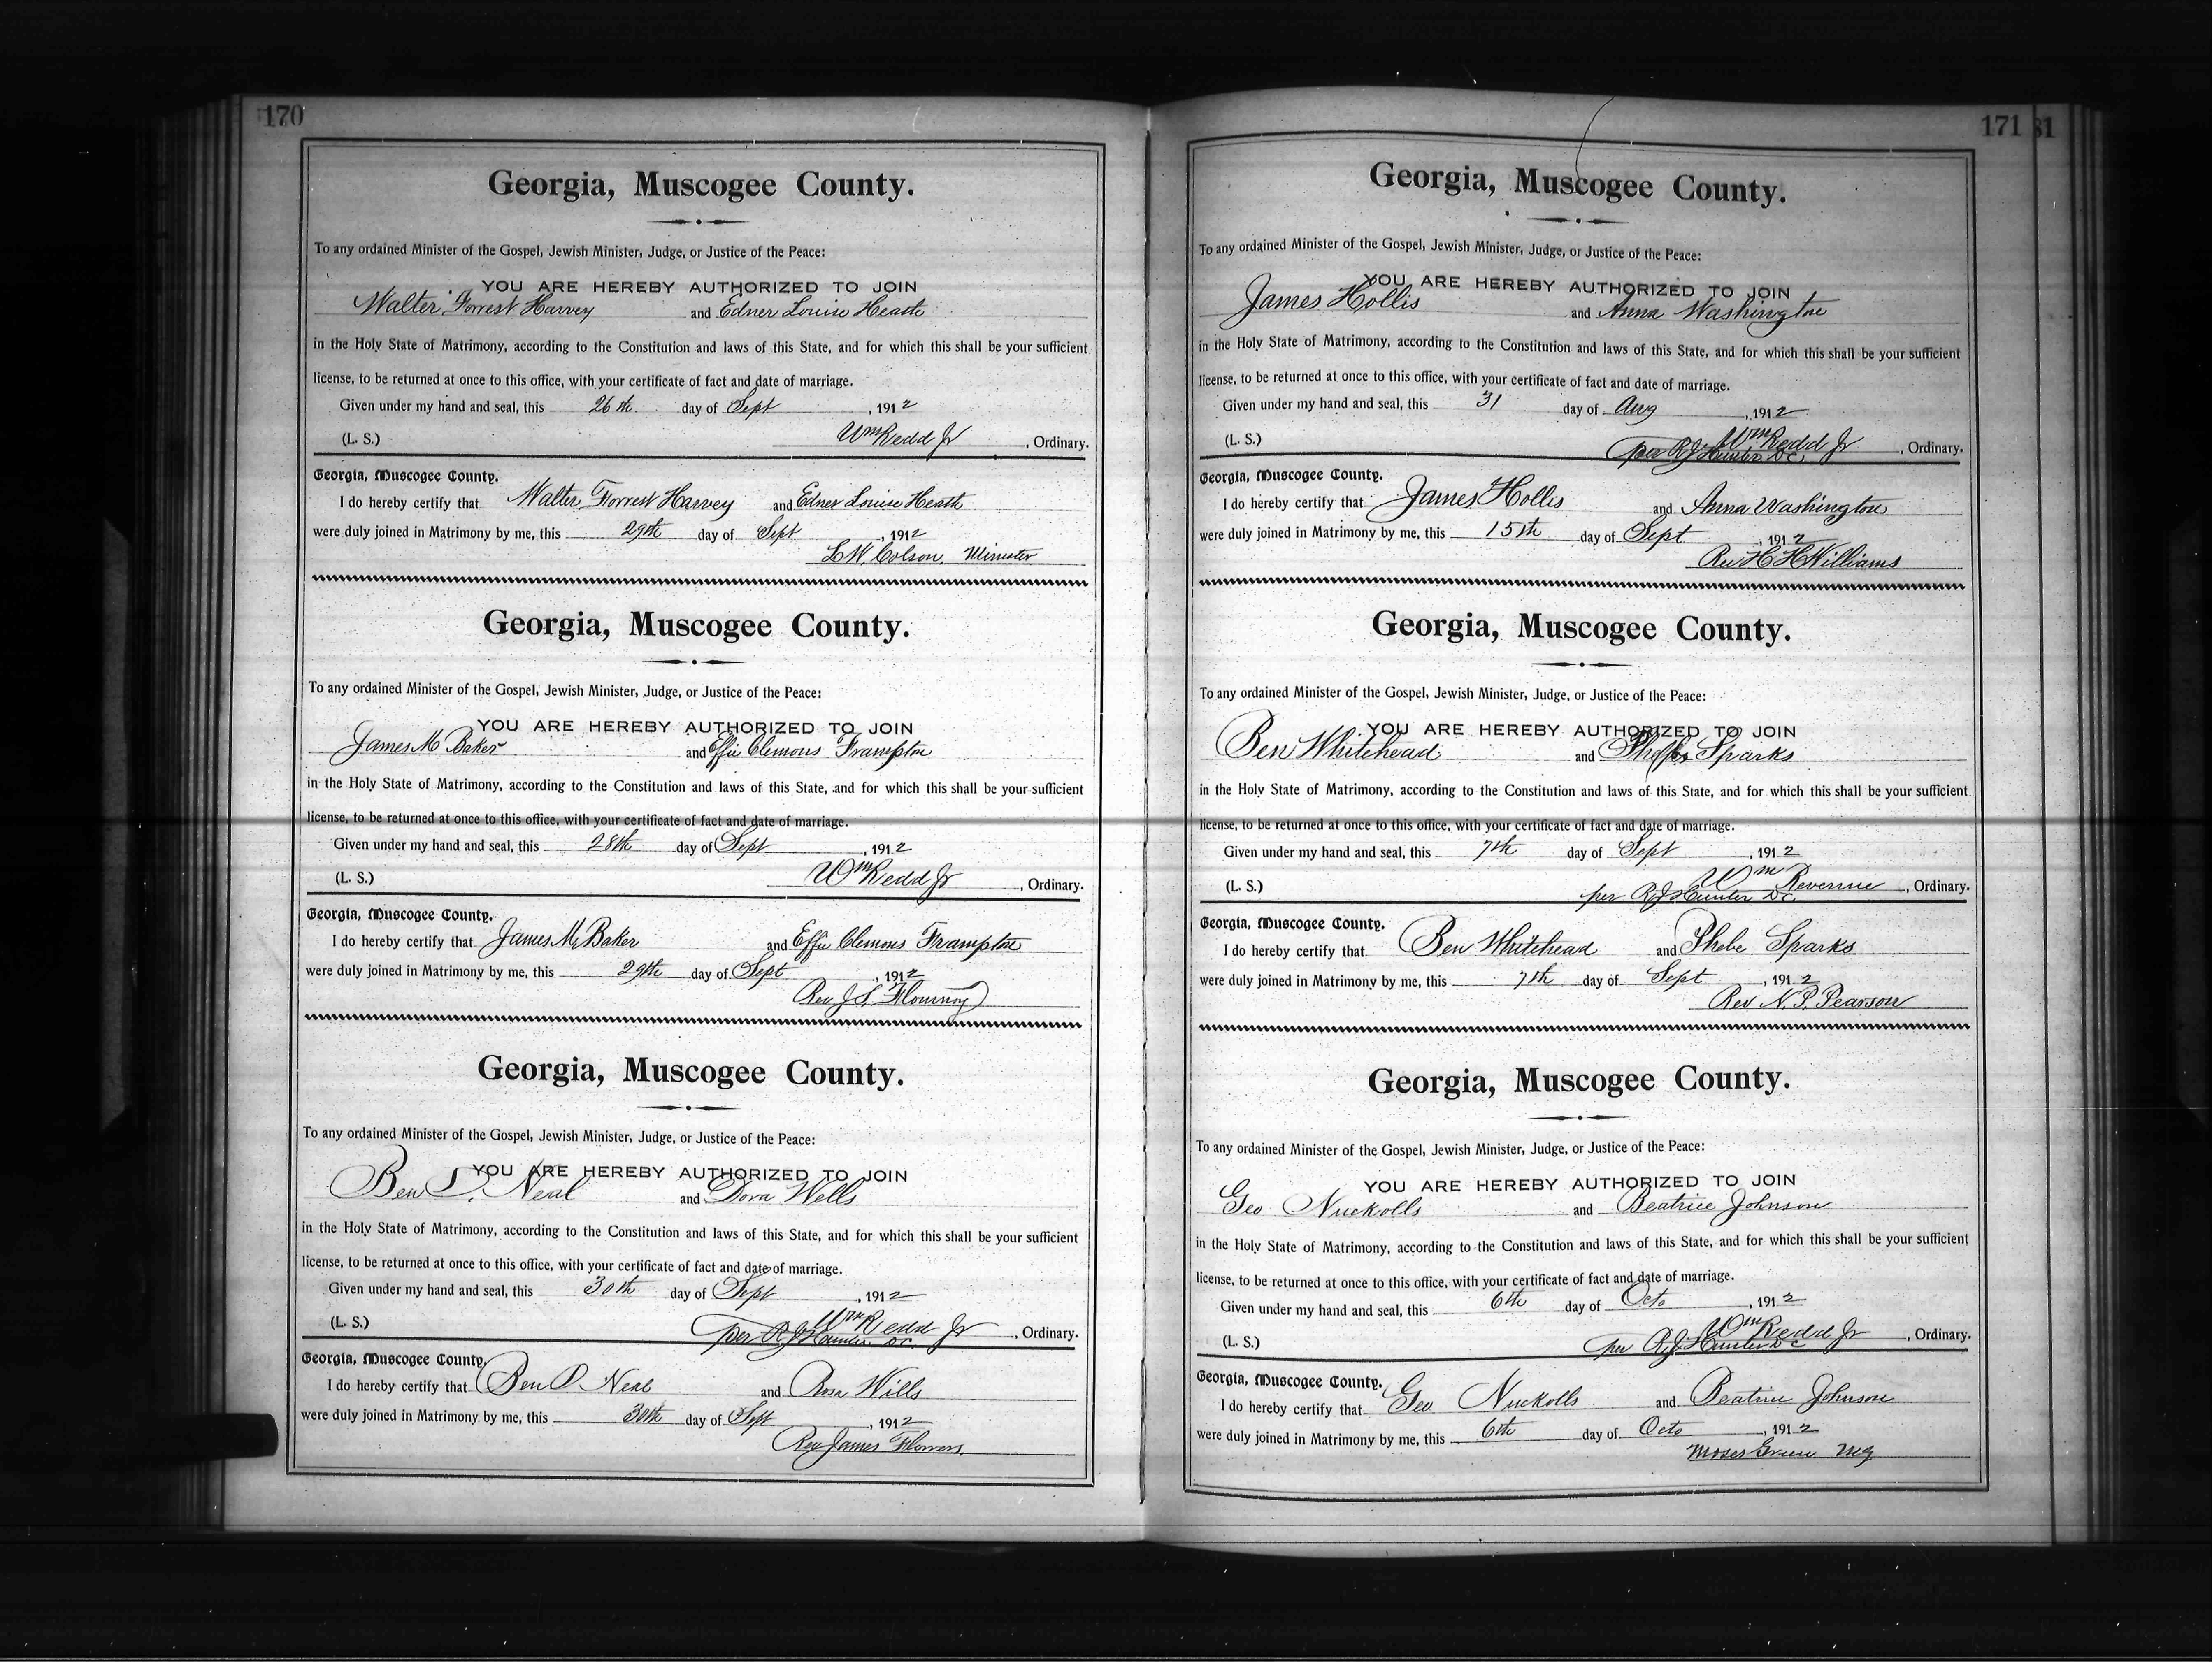 170
Georgia, Muscogee County.
To any ordained Minister of the Gospel, Jewish Minister, Judge, or Justice of the Peace:
YOU ARE HEREBY AUTHORIZED TO JOIN
Walter Forrest Harvey and Edner Louise Heath
in the Holy State of Matrimony, according to the Constitution and laws of this State, and for which this shall be your sufficient
license, to be returned at once to this office, with your certificate of fact and date of marriage.
Given under my hand and seal, this 26th day of Sept, 1912
(L. S.) Wm Redd Jr, Ordinary.
Georgia, Muscogee County.
I do hereby certify that Walter Forrest Harvey and Edner Louise Heath
were duly joined in Matrimony by me, this 29th day of Sept, 1912
L W Colson, Minister
Georgia, Muscogee County.
To any ordained Minister of the Gospel, Jewish Minister, Judge, or Justice of the Peace:
YOU ARE HEREBY AUTHORIZED TO JOIN
James M Baker and Effie Clemons Frampton
in the Holy State of Matrimony, according to the Constitution and laws of this State, and for which this shall be your sufficient
license, to be returned at once to this office, with your certificate of fact and date of marriage.
Given under my hand and seal, this 28th day of Sept, 1912
(L. S.) Wm Redd Jr, Ordinary.
Georgia, Muscogee County.
I do hereby certify that James M Baker and Effie Clemons Frampton
were duly joined in Matrimony by me, this 29th day of Sept, 1912
Rev J S Flournoy
Georgia, Muscogee County.
To any ordained Minister of the Gospel, Jewish Minister, Judge, or Justice of the Peace:
YOU ARE HEREBY AUTHORIZED TO JOIN
Ben P. Neal and Dora Wells
in the Holy State of Matrimony, according to the Constitution and laws of this State, and for which this shall be your sufficient
license, to be returned at once to this office, with your certificate of fact and date of marriage.
Given under my hand and seal, this 30th day of Sept, 1912
Wm Redd Jr
(L. S.) per R J Hunter D C, Ordinary.
Georgia, Muscogee County.
I do hereby certify that Ben P. Neal and Rosa Wills
were duly joined in Matrimony by me, this 30th day of Sept, 1912
Rev James Flowers
171 31
Georgia, Muscogee County.
To any ordained Minister of the Gospel, Jewish Minister, Judge, or Justice of the Peace:
YOU ARE HEREBY AUTHORIZED TO JOIN
James Hollis and Anna Washington
in the Holy State of Matrimony, according to the Constitution and laws of this State, and for which this shall be your sufficient
license, to be returned at once to this office, with your certificate of fact and date of marriage.
Given under my hand and seal, this 31 day of Aug, 1912
Wm Redd Jr
(L. S.) per R J Hunter D C, Ordinary.
Georgia, Muscogee County.
I do hereby certify that James Hollis and Anna Washington
were duly joined in Matrimony by me, this 15th day of Sept, 1912
Rev H H Williams
Georgia, Muscogee County.
To any ordained Minister of the Gospel, Jewish Minister, Judge, or Justice of the Peace:
YOU ARE HEREBY AUTHORIZED TO JOIN
Ben Whitehead and Sparks
in the Holy State of Matrimony, according to the Constitution and laws of this State, and for which this shall be your sufficient
license, to be returned at once to this office, with your certificate of fact and date of marriage.
Given under my hand and seal, this 7th day of Sept, 1912
Wm
(L. S.) per R J Hunter D C, Ordinary.
Georgia, Muscogee County.
I do hereby certify that Ben Whitehead and Phebe Sparks
were duly joined in Matrimony by me, this 7th day of Sept, 1912
Rev N. P. Pearson
Georgia, Muscogee County.
To any ordained Minister of the Gospel, Jewish Minister, Judge, or Justice of the Peace:
YOU ARE HEREBY AUTHORIZED TO JOIN
Geo Nuckolls and Beatrice Johnson
in the Holy State of Matrimony, according to the Constitution and laws of this State, and for which this shall be your sufficient
license, to be returned at once to this office, with your certificate of fact and date of marriage.
Given under my hand and seal, this 6th day of Octo, 1912
Wm Redd Jr
(L. S.) per R J Hunter D C, Ordinary.
Georgia, Muscogee County.
I do hereby certify that Geo Nuckolls and Beatrice Johnson
were duly joined in Matrimony by me, this 6th day of Octo, 1912
Moses Green MG